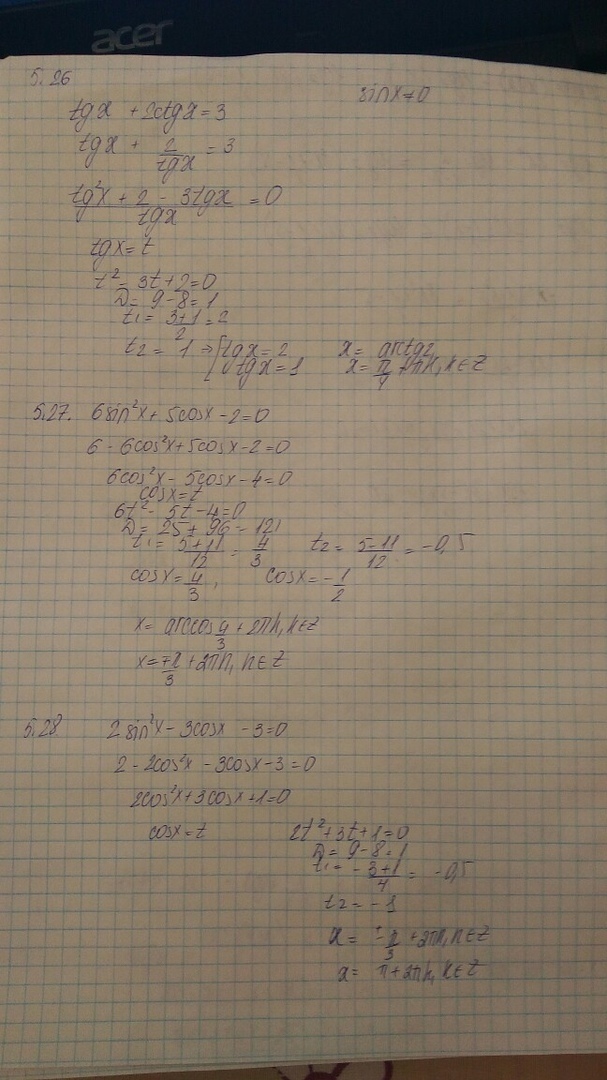 acer
5.26
sinx≠0
tgx + 2ctgx = 3
tgx + 2/tgx = 3
(tg²x + 2 - 3tgx)/tgx = 0
tgx = t
t² - 3t + 2 = 0
D = 9 - 8 = 1
t₁ = (3+1)/2 = 2
t₂ = 1 ⇒ [tgx = 2 x = arctg2
tgx = 1 x = π/4 + πn, n∈Z
5.27. 6sin²x + 5cosx - 2 = 0
6 - 6cos²x + 5cosx - 2 = 0
6cos²x - 5cosx - 4 = 0
cosx = t
6t² - 5t - 4 = 0
D = 25 + 96 = 121
t₁ = (5+11)/12 = 4/3 t₂ = (5-11)/12 = -0,5
cosx = 4/3, cosx = -1/2
x = arccos 4/3 + 2πn, n∈Z
x = π/3 + 2πn, n∈Z
5.28 2sin²x - 3cosx - 3 = 0
2 - 2cos²x - 3cosx - 3 = 0
2cos²x + 3cosx + 1 = 0
cosx = t 2t² + 3t + 1 = 0
D = 9 - 8 = 1
t₁ = (-3+1)/4 = -0,5
t₂ = -1
x = π/3 + 2πn, n∈Z
x = π + 2πn, n∈Z